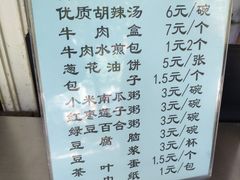 优质胡辣汤 6元/碗
牛肉盒 7元/个
牛肉水煎包 1元2个
葱花油饼 5元/张
包子 1.5元/个
小米南瓜粥 3元/碗
红枣莲子粥 3元/碗
绿豆百合粥 3元/碗
豆腐脑 3元/碗
豆浆 3元/杯
茶叶蛋 1.5元/个
巾纸 1元/包